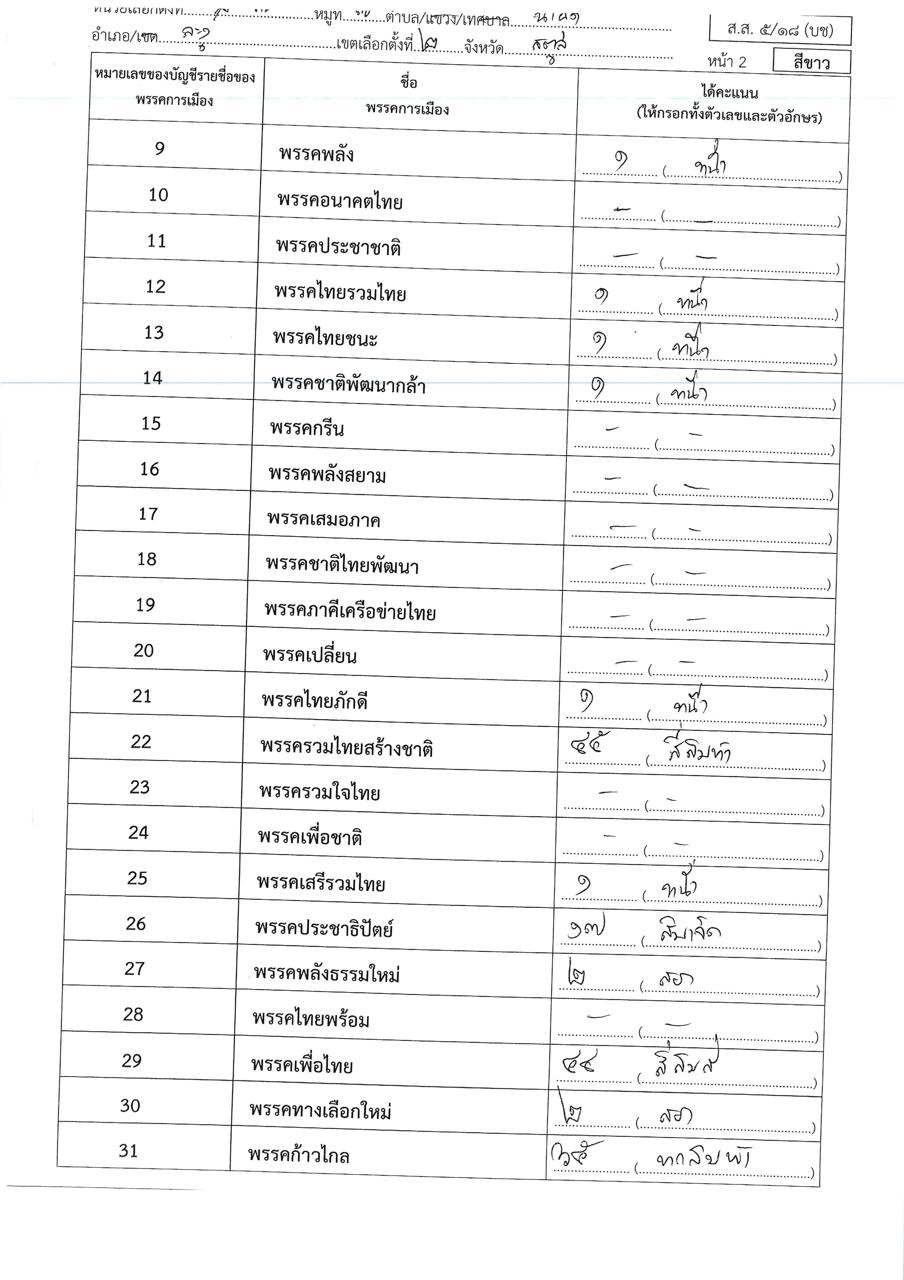 หน่วยเลือกตั้งที่ หมู่ที่ ตำบล/แขวง/เทศบาล
ส.ส. ๕/๑๘ (บช)
อำเภอ/เขต ละงู เขตเลือกตั้งที่ ๒ จังหวัด สตูล
หน้า 2 สีขาว
หมายเลขของบัญชีรายชื่อของพรรคการเมือง ชื่อพรรคการเมือง ได้คะแนน (ให้กรอกทั้งตัวเลขและตัวอักษร)
9 พรรคพลัง ๑ (หนึ่ง)
10 พรรคอนาคตไทย - (-)
11 พรรคประชาชาติ - (-)
12 พรรคไทยรวมไทย ๑ (หนึ่ง)
13 พรรคไทยชนะ ๑ (หนึ่ง)
14 พรรคชาติพัฒนากล้า ๑ (หนึ่ง)
15 พรรคกรีน - (-)
16 พรรคพลังสยาม - (-)
17 พรรคเสมอภาค - (-)
18 พรรคชาติไทยพัฒนา - (-)
19 พรรคภาคีเครือข่ายไทย - (-)
20 พรรคเปลี่ยน - (-)
21 พรรคไทยภักดี ๑ (หนึ่ง)
22 พรรครวมไทยสร้างชาติ ๔๕ (สี่สิบห้า)
23 พรรครวมใจไทย - (-)
24 พรรคเพื่อชาติ - (-)
25 พรรคเสรีรวมไทย ๑ (หนึ่ง)
26 พรรคประชาธิปัตย์ ๑๗ (สิบเจ็ด)
27 พรรคพลังธรรมใหม่ ๒ (สอง)
28 พรรคไทยพร้อม - (-)
29 พรรคเพื่อไทย ๔๔ (สี่สิบสี่)
30 พรรคทางเลือกใหม่ ๒ (สอง)
31 พรรคก้าวไกล ๖๕ (หกสิบห้า)